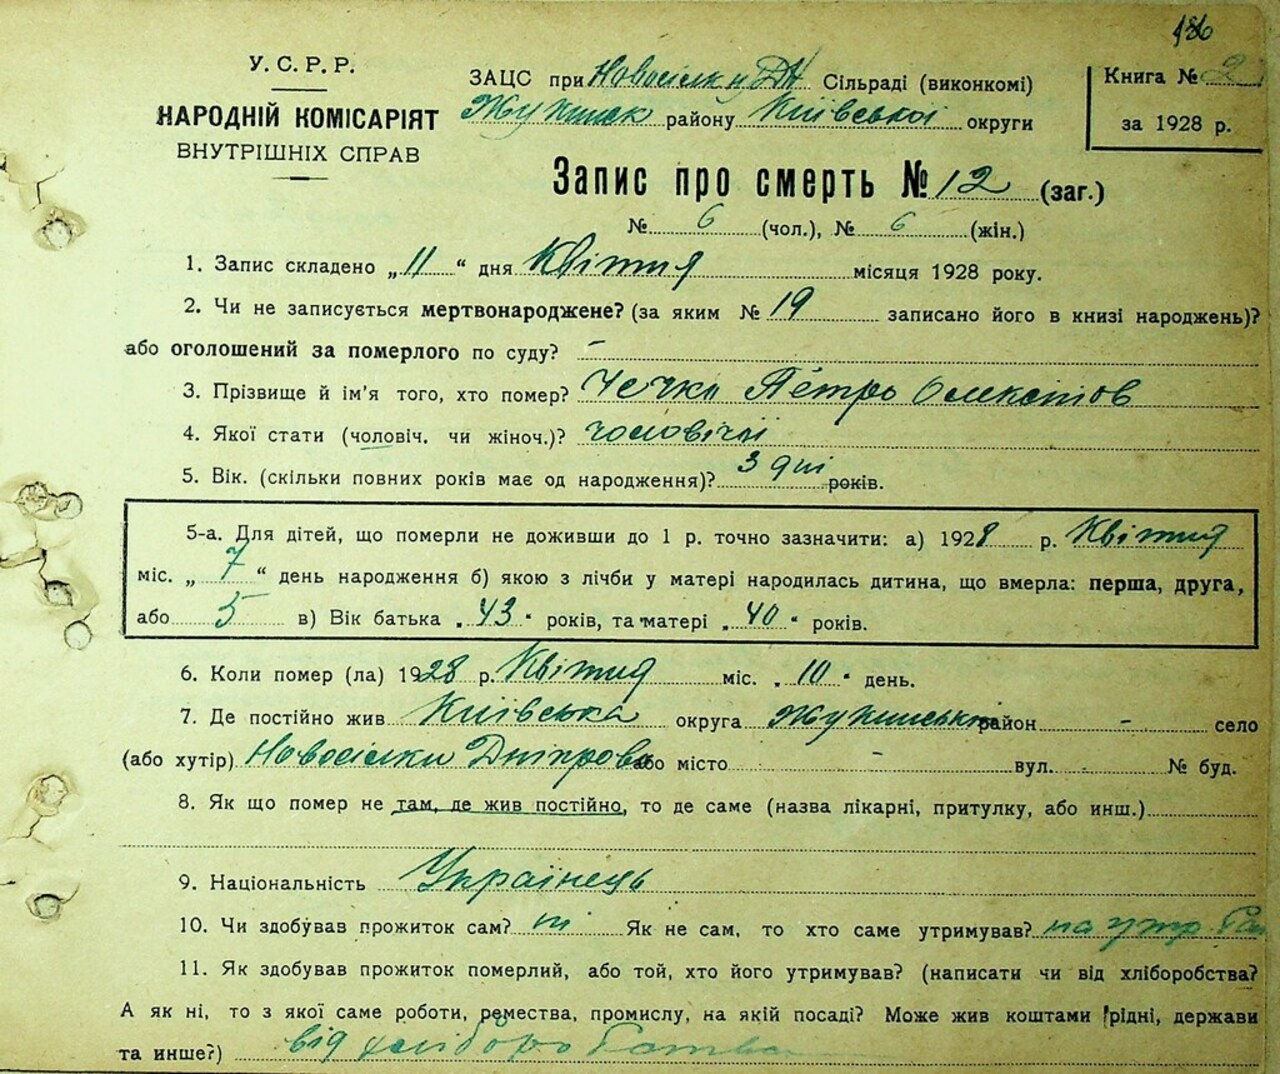 186
У. С. Р. Р.
НАРОДНІЙ КОМІСАРІЯТ
ВНУТРІШНІХ СПРАВ
ЗАЦС при Новосілки Дн Сільраді (виконкомі)
Жукинск району Київської округи
Книга № 2
за 1928 р.
Запис про смерть № 12 (заг.)
№ 6 (чол.), № 6 (жін.)
1. Запис складено „11“ дня Квітня місяця 1928 року.
2. Чи не записується мертвонароджене? (за яким № 19 записано його в книзі народжень)?
або оголошений за померлого по суду? –
3. Прізвище й ім'я того, хто помер? Петро
4. Якої стати (чоловіч. чи жіноч.)? чоловічої
5. Вік. (скільки повних років має од народження)? 3 дні років.
5-а. Для дітей, що померли не доживши до 1 р. точно зазначити: а) 1928 р. Квітня
міс. „7“ день народження б) якою з лічби у матері народилась дитина, що вмерла: перша, друга,
або 5 в) Вік батька „43“ років, та матері „40“ років.
6. Коли помер (ла) 1928 р. Квітня міс. „10“ день.
7. Де постійно жив Київська округа Жукинський район - село
(або хутір) Новосілки Дніпрові або місто - вул. - № буд.
8. Як що помер не там, де жив постійно, то де саме (назва лікарні, притулку, або инш.)
9. Національність Українець
10. Чи здобував прожиток сам? ні Як не сам, то хто саме утримував? на утр. Бат
11. Як здобував прожиток померлий, або той, хто його утримував? (написати чи від хліборобства?
А як ні, то з якої саме роботи, ремества, промислу, на якій посаді? Може жив коштами рідні, держави
та инше?) від хліборо Батька